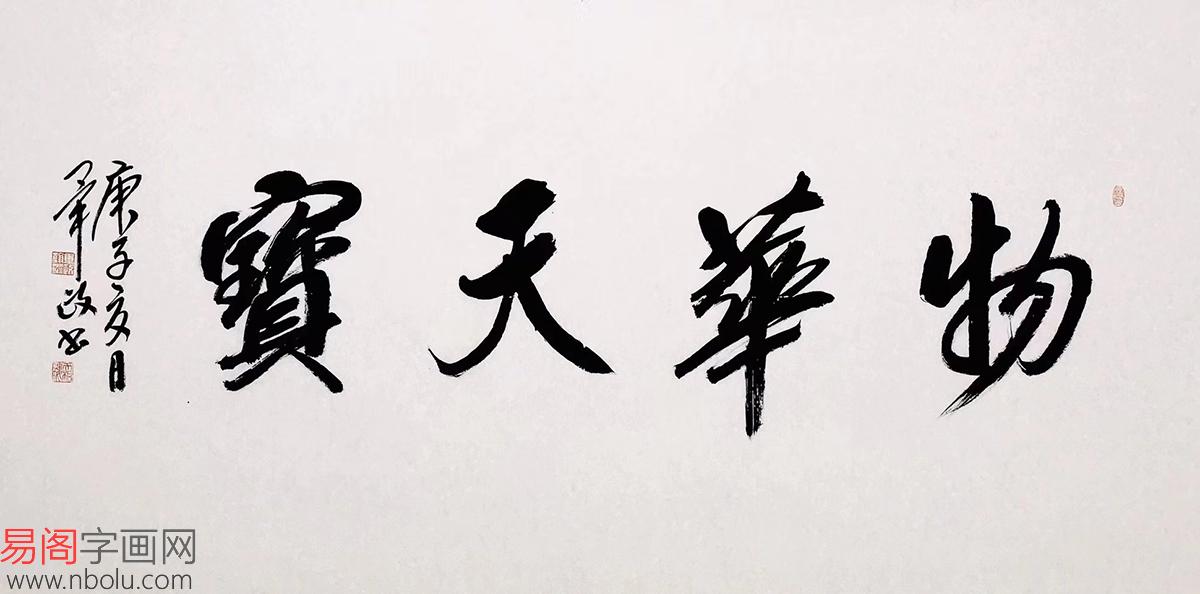 物華天寶
庚子夏月
政书
易阁字画网
www.nbolu.com